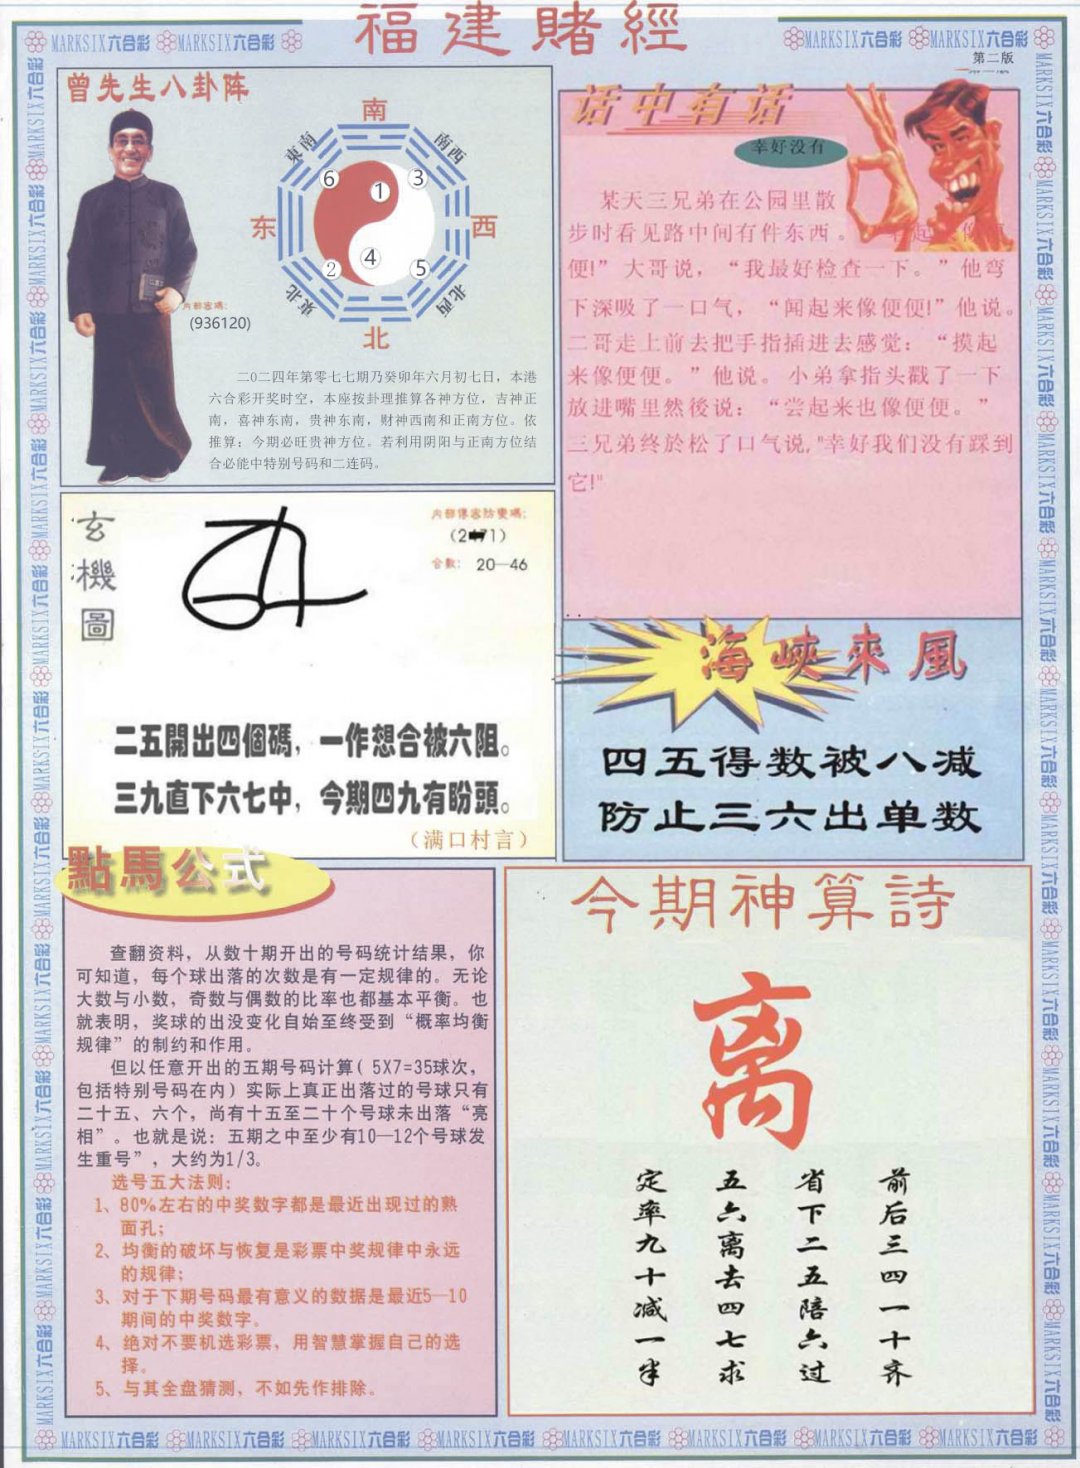 福建賭經
MARKSIX六合彩 MARKSIX六合彩
MARKSIX六合彩 MARKSIX六合彩
第二版
曾先生八卦阵
南
東南
南西
6
1
3
东
西
2
4
5
東北
北西
北
内部密碼:
(936120)
二0二四年第零七七期乃癸卯年六月初七日，本港
六合彩开奖时空，本座按卦理推算各神方位，吉神正
南，喜神东南，贵神东南，财神西南和正南方位。依
推算：今期必旺贵神方位。若利用阴阳与正南方位结
合必能中特别号码和二连码。
话中有话
幸好没有
某天三兄弟在公园里散
步时看见路中间有件东西。
便!”大哥说，“我最好检查一下。”他弯
下深吸了一口气，“闻起来像便便!”他说。
二哥走上前去把手指插进去感觉：“摸起
来像便便。”他说。小弟拿指头戳了一下
放进嘴里然後说：“尝起来也像便便。”
三兄弟终於松了口气说,"幸好我们没有踩到
它!"
玄機圖
内部傳密防變碼:
合數: 20—46
二五開出四個碼，一作想合被六阻。
三九直下六七中，今期四九有盼頭。
（满口村言）
海峽來風
四五得数被八减
防止三六出单数
點馬公式
查翻资料，从数十期开出的号码统计结果，你
可知道，每个球出落的次数是有一定规律的。无论
大数与小数，奇数与偶数的比率也都基本平衡。也
就表明，奖球的出没变化自始至终受到“概率均衡
规律”的制约和作用。
但以任意开出的五期号码计算( 5X7=35球次，
包括特别号码在内）实际上真正出落过的号球只有
二十五、六个，尚有十五至二十个号球未出落“亮
相”。也就是说：五期之中至少有10—12个号球发
生重号”，大约为1/3。
选号五大法则:
1、80%左右的中奖数字都是最近出现过的熟
面孔;
2、均衡的破坏与恢复是彩票中奖规律中永远
的规律;
3、对于下期号码最有意义的数据是最近5—10
期间的中奖数字。
4、绝对不要机选彩票，用智慧掌握自己的选
择。
5、与其全盘猜测，不如先作排除。
今期神算詩
离
前后三四一十齐
省下二五陪六过
五六离去四七求
定率九十减一半
MARKSIX六合彩 MARKSIX六合彩 MARKSIX六合彩 MARKSIX六合彩 MARKSIX六合彩 MARKSIX六合彩 MARKSIX六合彩 MARKSIX六合彩